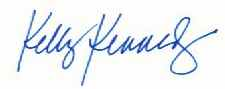 Kelly Kennedy